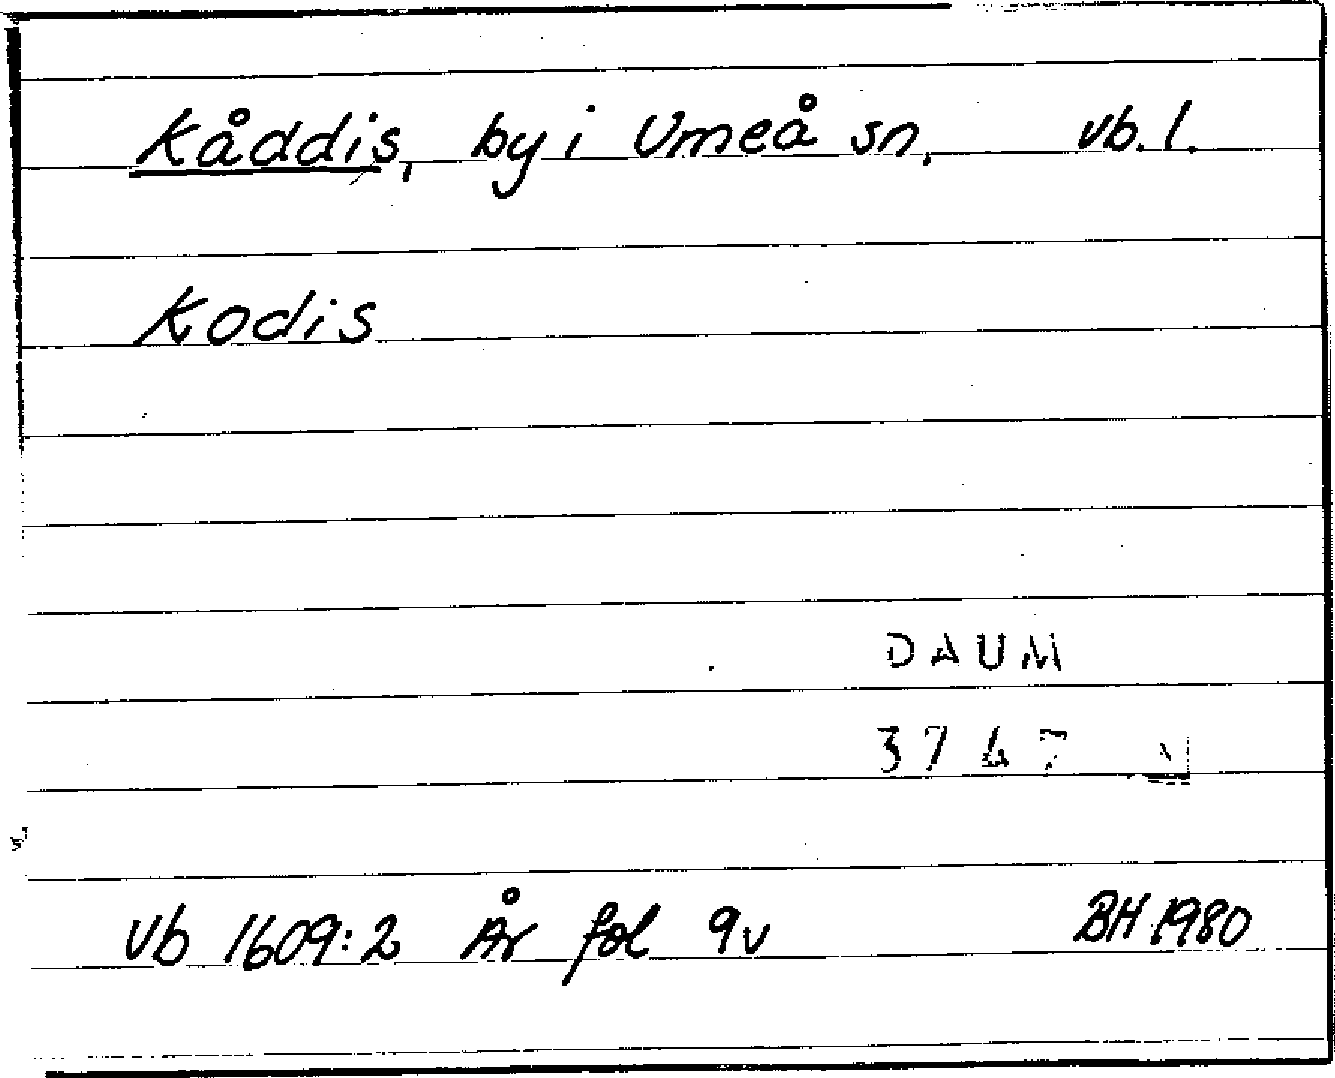 Kåddis, by i Umeå sn, vb. l.
Kodis
DAUM
3747
Vb 1609:2 År fol 9v BH 1980